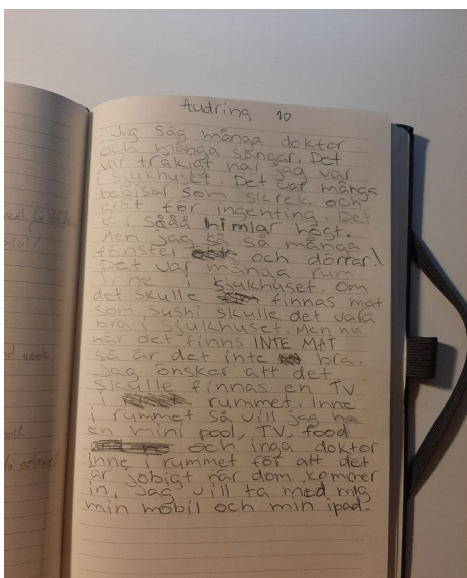 Audring 10
Jag såg många doktor
och många sängar. Det
var tråkigt när jag var
i sjukhuset. Det var många
bebisar som skrek och
grät för ingenting. Det
var sååå himlar högt.
Men jag så så många
fönster och dörrar!
Det var många rum
inne i sjukhuset. Om
det skulle finnas mat
som sushi skulle det vara
bra i sjukhuset. Men nu
när det finns INTE MAT
så är det inte bra.
Jag önskar att det
skulle finnas en TV
i rummet. Inne
i rummet så vill jag ha
en mini pool, TV, food
och inga doktor
inne i rummet för att det
är jobigt när dom kommer
in. Jag vill ta med mig
min mobil och min ipad.
week